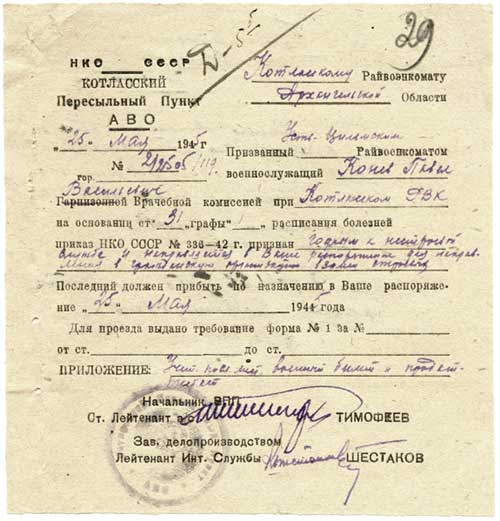 29
Д-5
НКО СССР
КОТЛАССКИЙ
Пересыльный Пункт
АВО
Котласскому Райвоенкомату
Архангельской Области
„25" Мая 1945 г
Усть-Цилемским
Призванный Райвоенкоматом
№
гор.
военнослужащий Конев Павел
Васильевич
Гарнизонной Врачебной комиссией при Котласском РВК
на основании ст. 31 графы 1 расписания болезней
приказ НКО СССР № 336-42 г. признан Годным к нестроевой
службе и направляется в Ваше распоряжение для направ-
ления в
Последний должен прибыть по назначению в Ваше распоряже-
ние „25" Мая 1945 года
Для проезда выдано требование форма № 1 за №
от ст. до ст.
ПРИЛОЖЕНИЕ: военный билет и продат-
тестат
Начальник ВПП
Ст. Лейтенант в/с ТИМОФЕЕВ
Зав. делопроизводством
Лейтенант Инт. Службы ШЕСТАКОВ